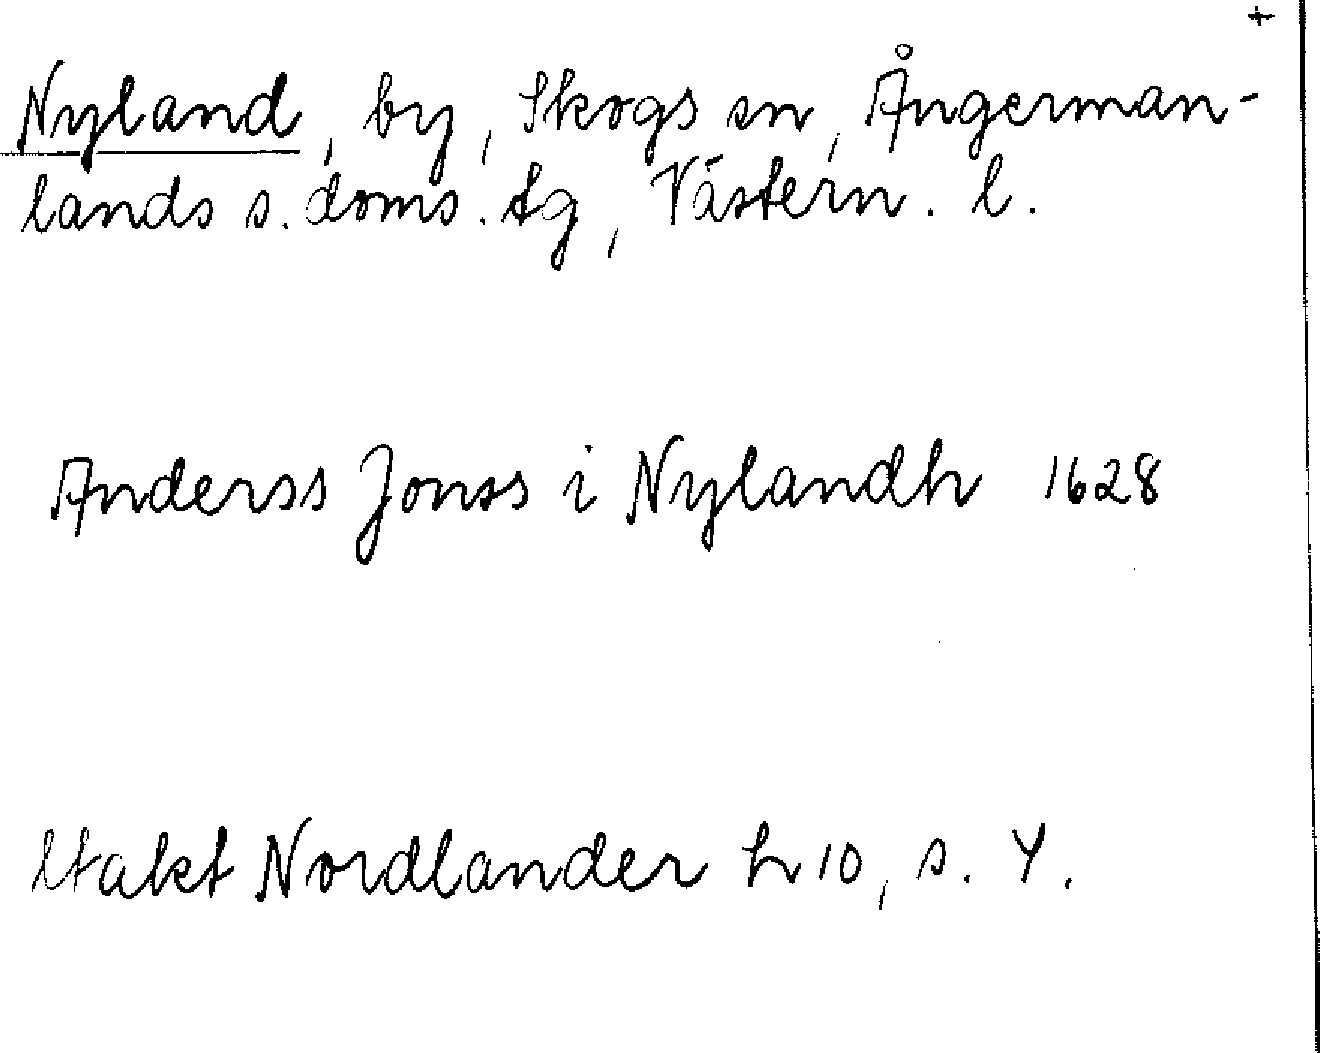 +
Nyland, by, Skogs sn, Ångerman-
lands s. doms. tg, Västern. l.
Anderss Jonss i Nylandh 1628
Utakt Nordlander h 10, s. 4.